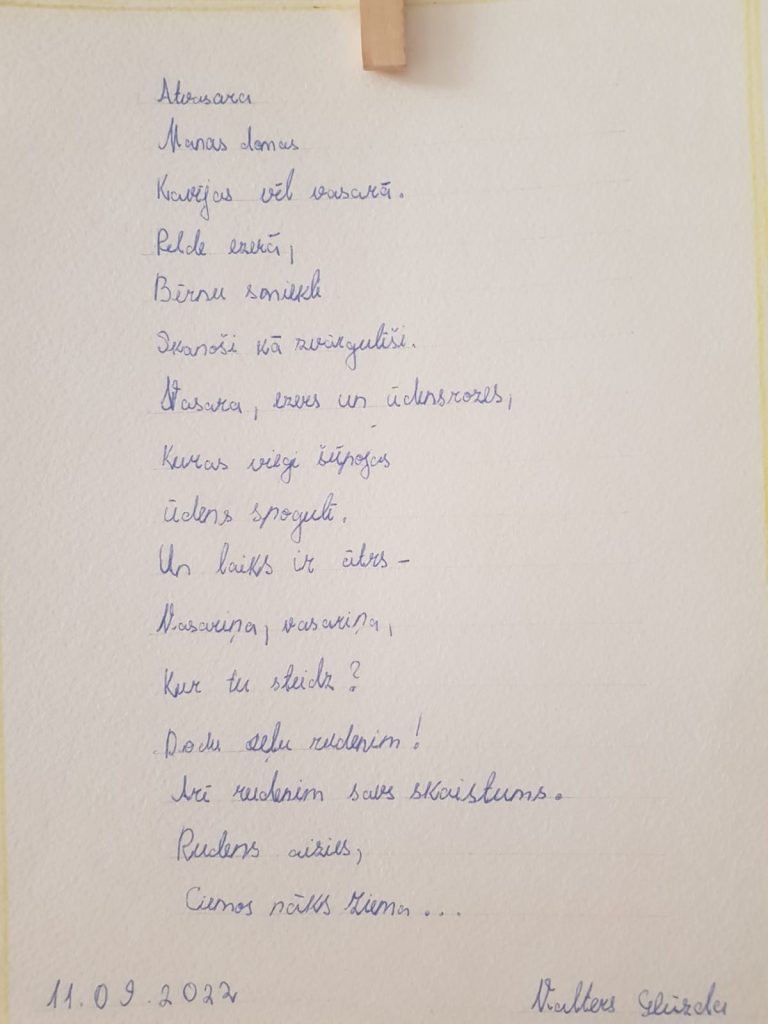 Atvasara
Manas domas
Kavējas vēl vasarā.
Pelde ezerā,
Bērnu smiekli
Skanoši kā zvārgulīši.
Vasara, ezers un ūdensrozes,
Kuras viegli šūpojas
ūdens spogulī.
Un laiks ir ātrs -
Vasariņa, vasariņa,
Kur tu steidz?
Dodu ceļu rudenim!
Arī rudenim savs skaistums.
Rudens aizies,
Ciemos nāks ziema...
11.09.2022 Valters